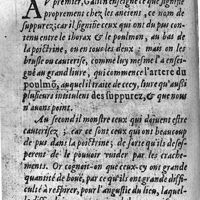 AV premier, Galien enseigne ce que signifie
proprement chez les anciens, ce nom de
suppurez; car il signifie ceux qui ont du pus con-
tenu entre le thorax & le poulmon, au bas de
la poictrine, ou en tous les deux : mais on les
brusle ou cauterise, comme luy mesme l'a ensei-
gné au grand livre, qui commence l'artere du
poulmō, auquel il traicte de cecy, livre qu'aussi
plusieurs intitulent des suppurez, & que nous
n'avons point.
Au second il monstre ceux qui doivent estre
cauterisez ; car ce sont ceux qui ont beaucoup
de pus dans la poictrine : de sorte qu'ils desesperent
de le pouvoir vuider par les crache-
ments. Or cognoit-on qu'ceux-cy ont grande
quantité de bouë, par ce qu'ils ont grande diffi-
culté à respirer, pour l'angustie du lieu, laquel-